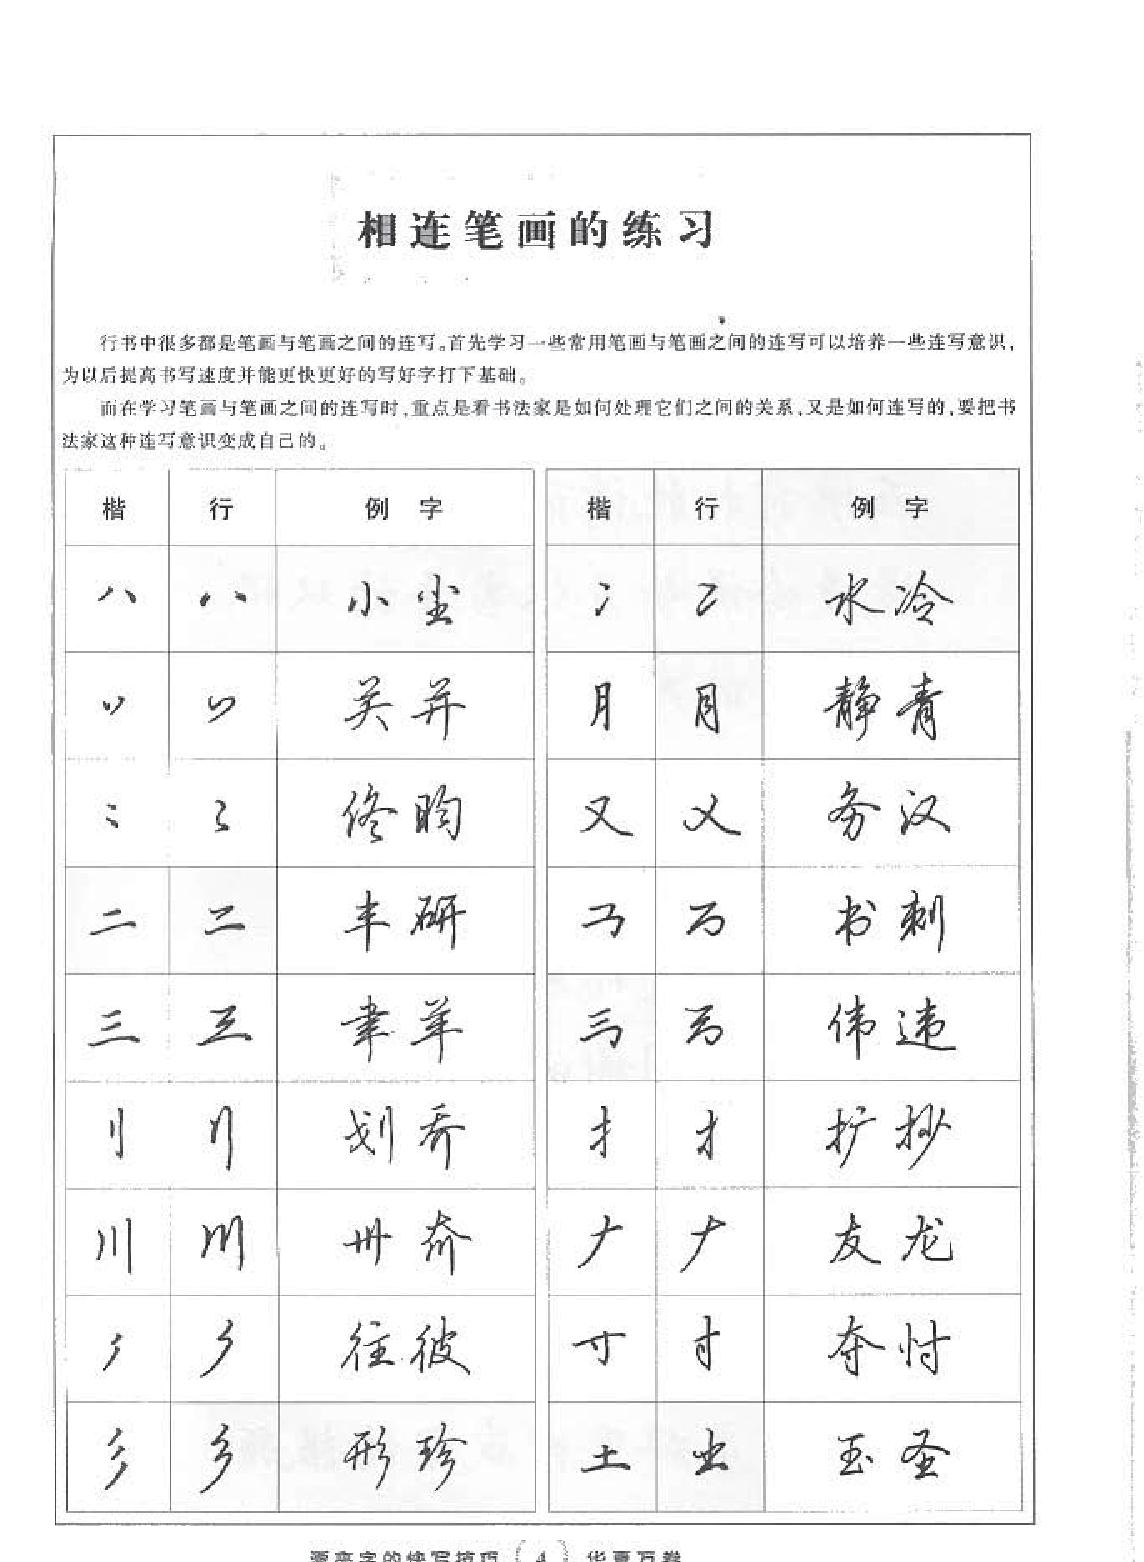 相连笔画的练习
行书中很多都是笔画与笔画之间的连写。首先学习一些常用笔画与笔画之间的连写可以培养一些连写意识,
为以后提高书写速度并能更快更好的写好字打下基础。
而在学习笔画与笔画之间的连写时,重点是看书法家是如何处理它们之间的关系,又是如何连写的,要把书
法家这种连写意识变成自己的。
楷 行 例 字 楷 行 例 字
八 八 小 尘 冫 冫 水 冷
丷 丷 关 并 月 月 静 青
佟 昀 又 又 务 汉
二 二 丰 研 书 刺
三 三 聿 羊 伟 违
刂 刂 划 乔 扌 扌 扩 抄
川 川 卅 奔 𠂇 𠂇 友 龙
往 彼 寸 寸 夺 忖
彡 彡 形 珍 土 土 玉 圣
漂亮字的快写技巧 4 华夏万卷